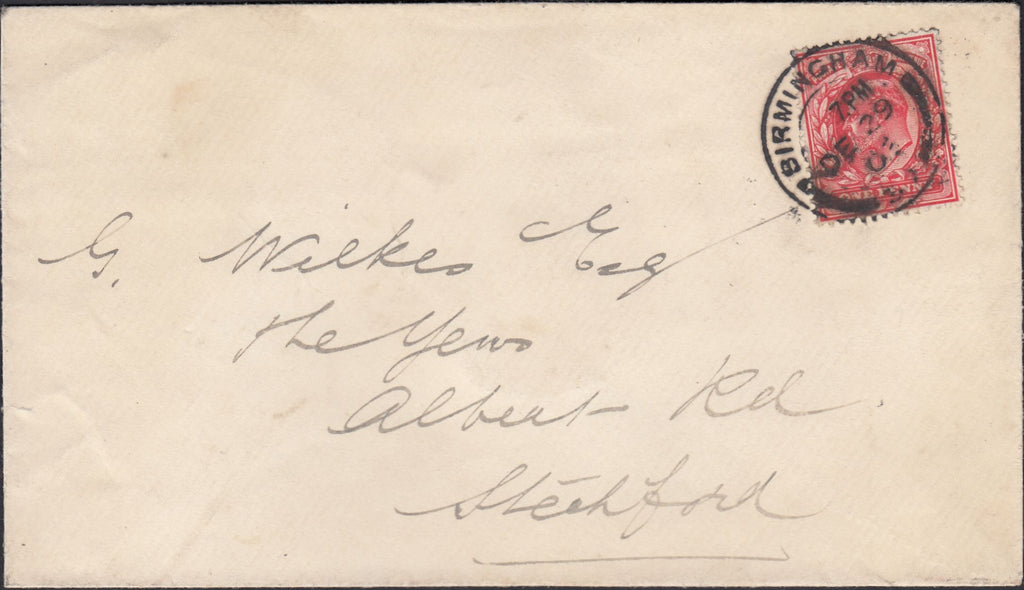 BIRMINGHAM
7 PM
DE 29
ONE PENNY
G. Wilkes Esq
The Yews
Albert Rd.
Stechford